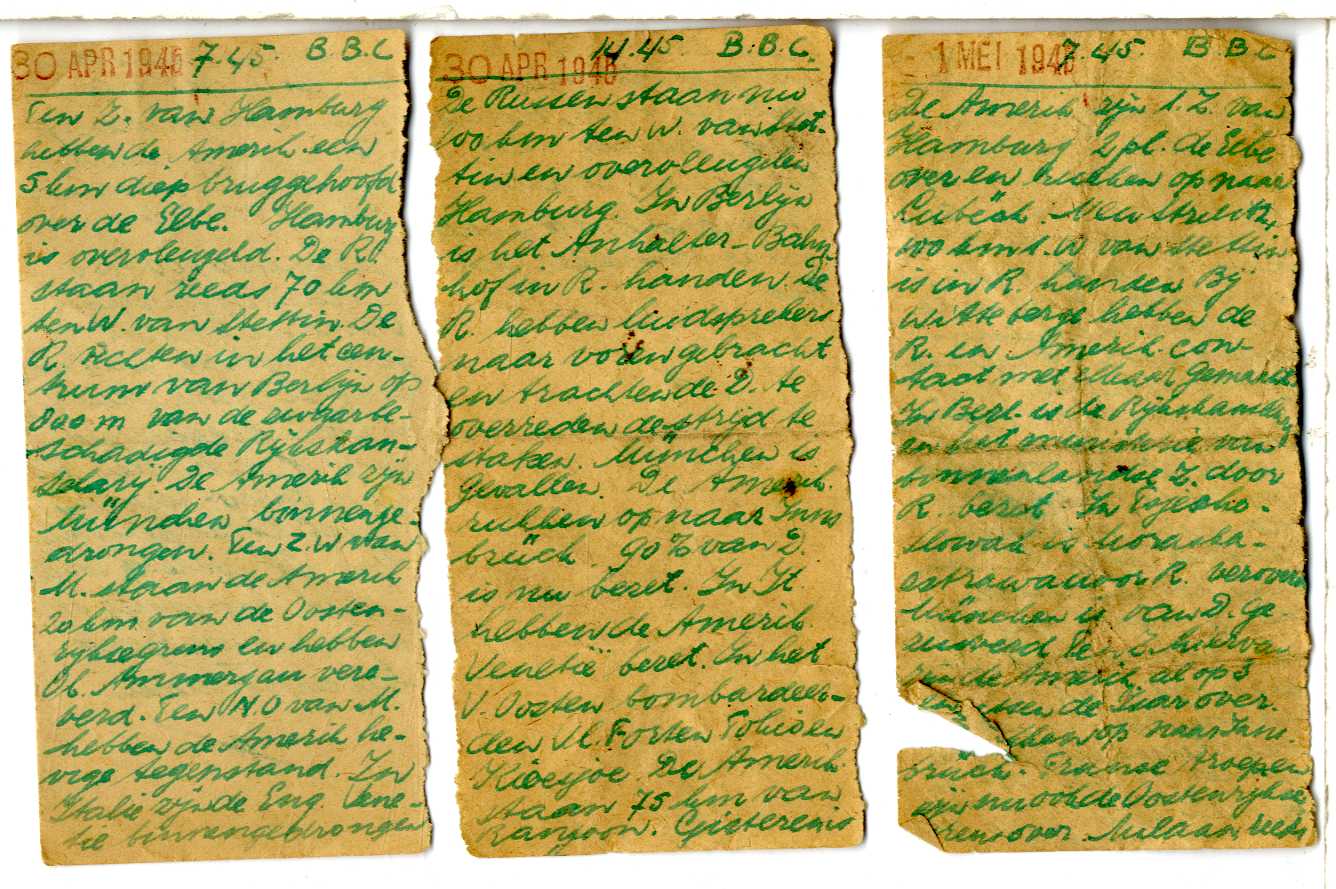 30 APR 1945 7.45 B.B.C
Ten Z. van Hamburg
hebben de Amerik. een
5 km diep bruggehoofd
over de Elbe. Hamburg
is overvleugeld. De R.
staan reeds 70 km
ten W. van Stettin. De
R. vechten in het cen-
trum van Berlijn op
800 m van de zwaarbe-
schadigde Rijkskan-
selarij. De Amerik zijn
München binnenge-
drongen. Ten Z.W van
M. staan de Amerik
20 km van de Oosten-
rijksegrens en hebben
Ob. Ammergau vero-
berd. Ten NO van M.
hebben de Amerik he-
vige tegenstand. In
Italië zijn de Eng. Vene-
tië binnengedrongen
30 APR 1945 14.45 B.B.C.
De Russen staan nu
100 km ten W. van Stet-
tin en overvleugelen
Hamburg. In Berlijn
is het Anhalter-Bahn-
hof in R. handen. De
R. hebben luidsprekers
naar voren gebracht
en trachten de D. te
overreden de strijd te
staken. München is
gevallen. De Amerik.
rukken op naar Inns
brück. 90 % van D.
is nu bezet. In It
hebben de Amerik
Venetië bezet. In het
V. Oosten bombardeer-
den Vl. Forten Tokio en
De Amerik
staan 75 km van
Rangoon. Gisteren is
1 MEI 1945 7.45 B B C
De Amerik zijn t. Z. van
Hamburg 2 pl. de Elbe
over en rukken op naar
Lübeck. Neu Strelitz,
100 km t. W van Stettin
is in R handen Bij
Witteberge hebben de
R. en Amerik. con-
tact met elkaar gemaakt
In Berl. is de Rijkskanselarij
en het ministerie van
binnenlandse Z. door
R. bezet. In Tsjecho-
slowak is Morawska-
ostrawa door R. veroverd
München is van D. ge
zuiverd. Ten Z. hiervan
zijn de Amerik al op 5
de Isar over.
op naar Inns
brück. Franse troepen
zijn nu ook de Oostenrijkse
grens over. Milaan reeds